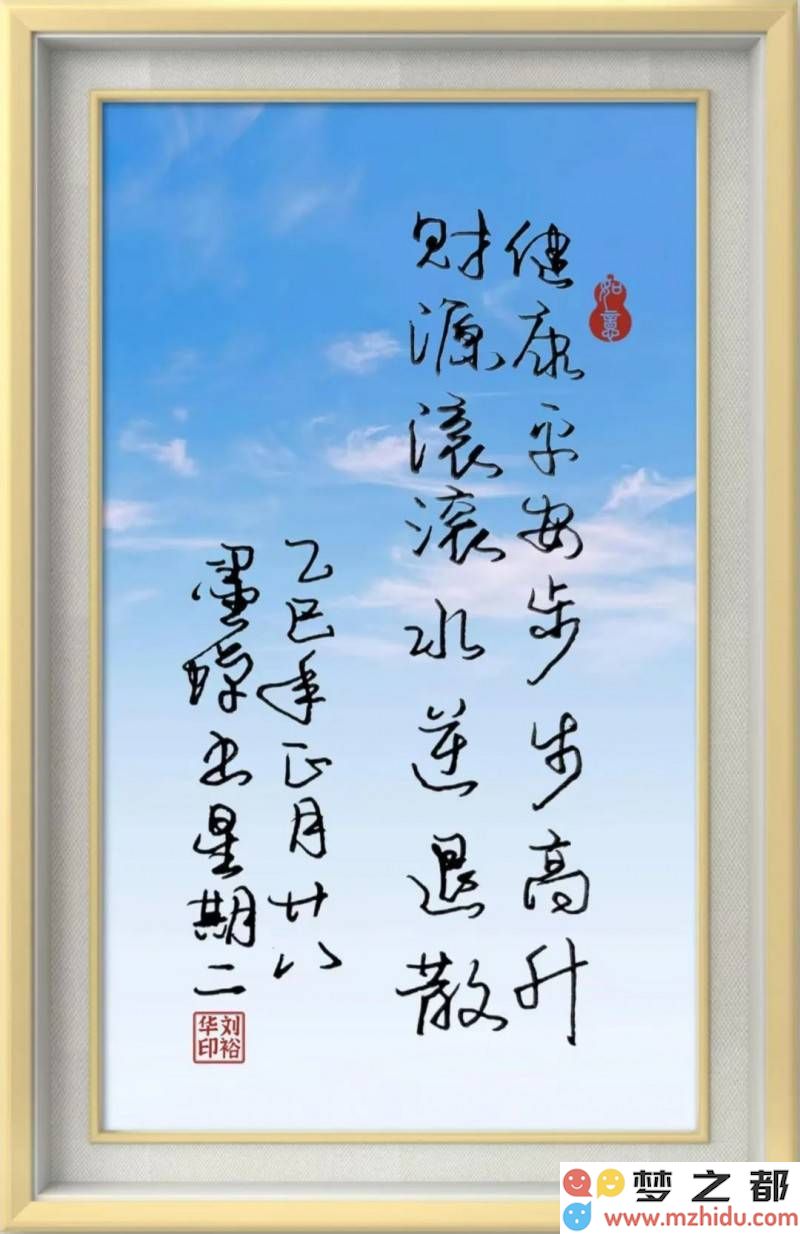 如意
健康平安步步高升
财源滚滚水逆退散
乙巳年正月廿八
墨璋书星期二
刘裕华印
梦之都
www.mzhidu.com